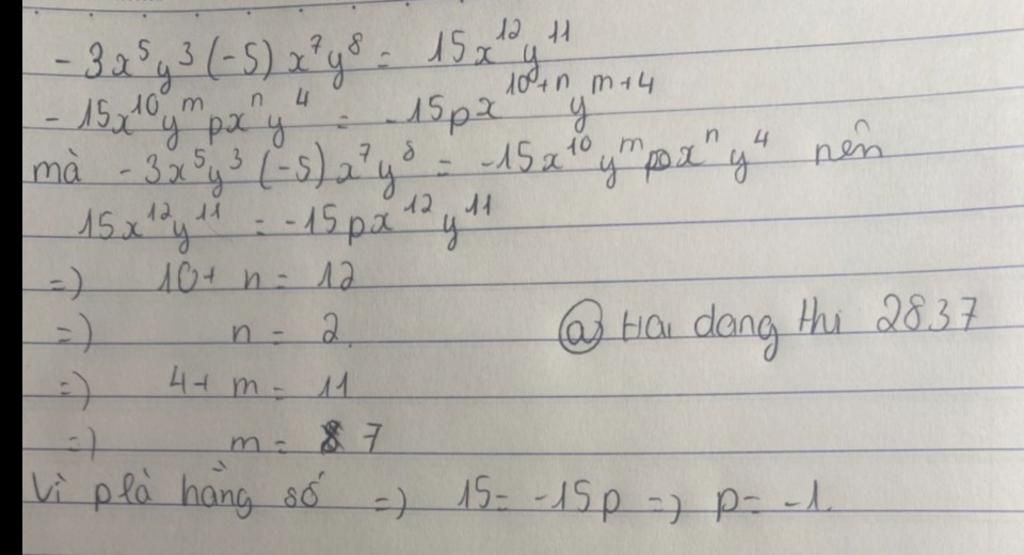 - 3x⁵y³(-5)x⁷y⁸ = 15x¹²y¹¹
- 15x¹⁰yᵐpxⁿy⁴ = -15px¹⁰⁺ⁿyᵐ⁺⁴
mà -3x⁵y³(-5)x⁷y⁸ = -15x¹⁰yᵐpxⁿy⁴ nên
15x¹²y¹¹ = -15px¹²y¹¹
=) 10+ n = 12
=) n = 2.
@ Hai dang thi 2837
=) 4+ m = 11
=) m = 7
Vì p là hằng số =) 15= -15p =) p= -1.